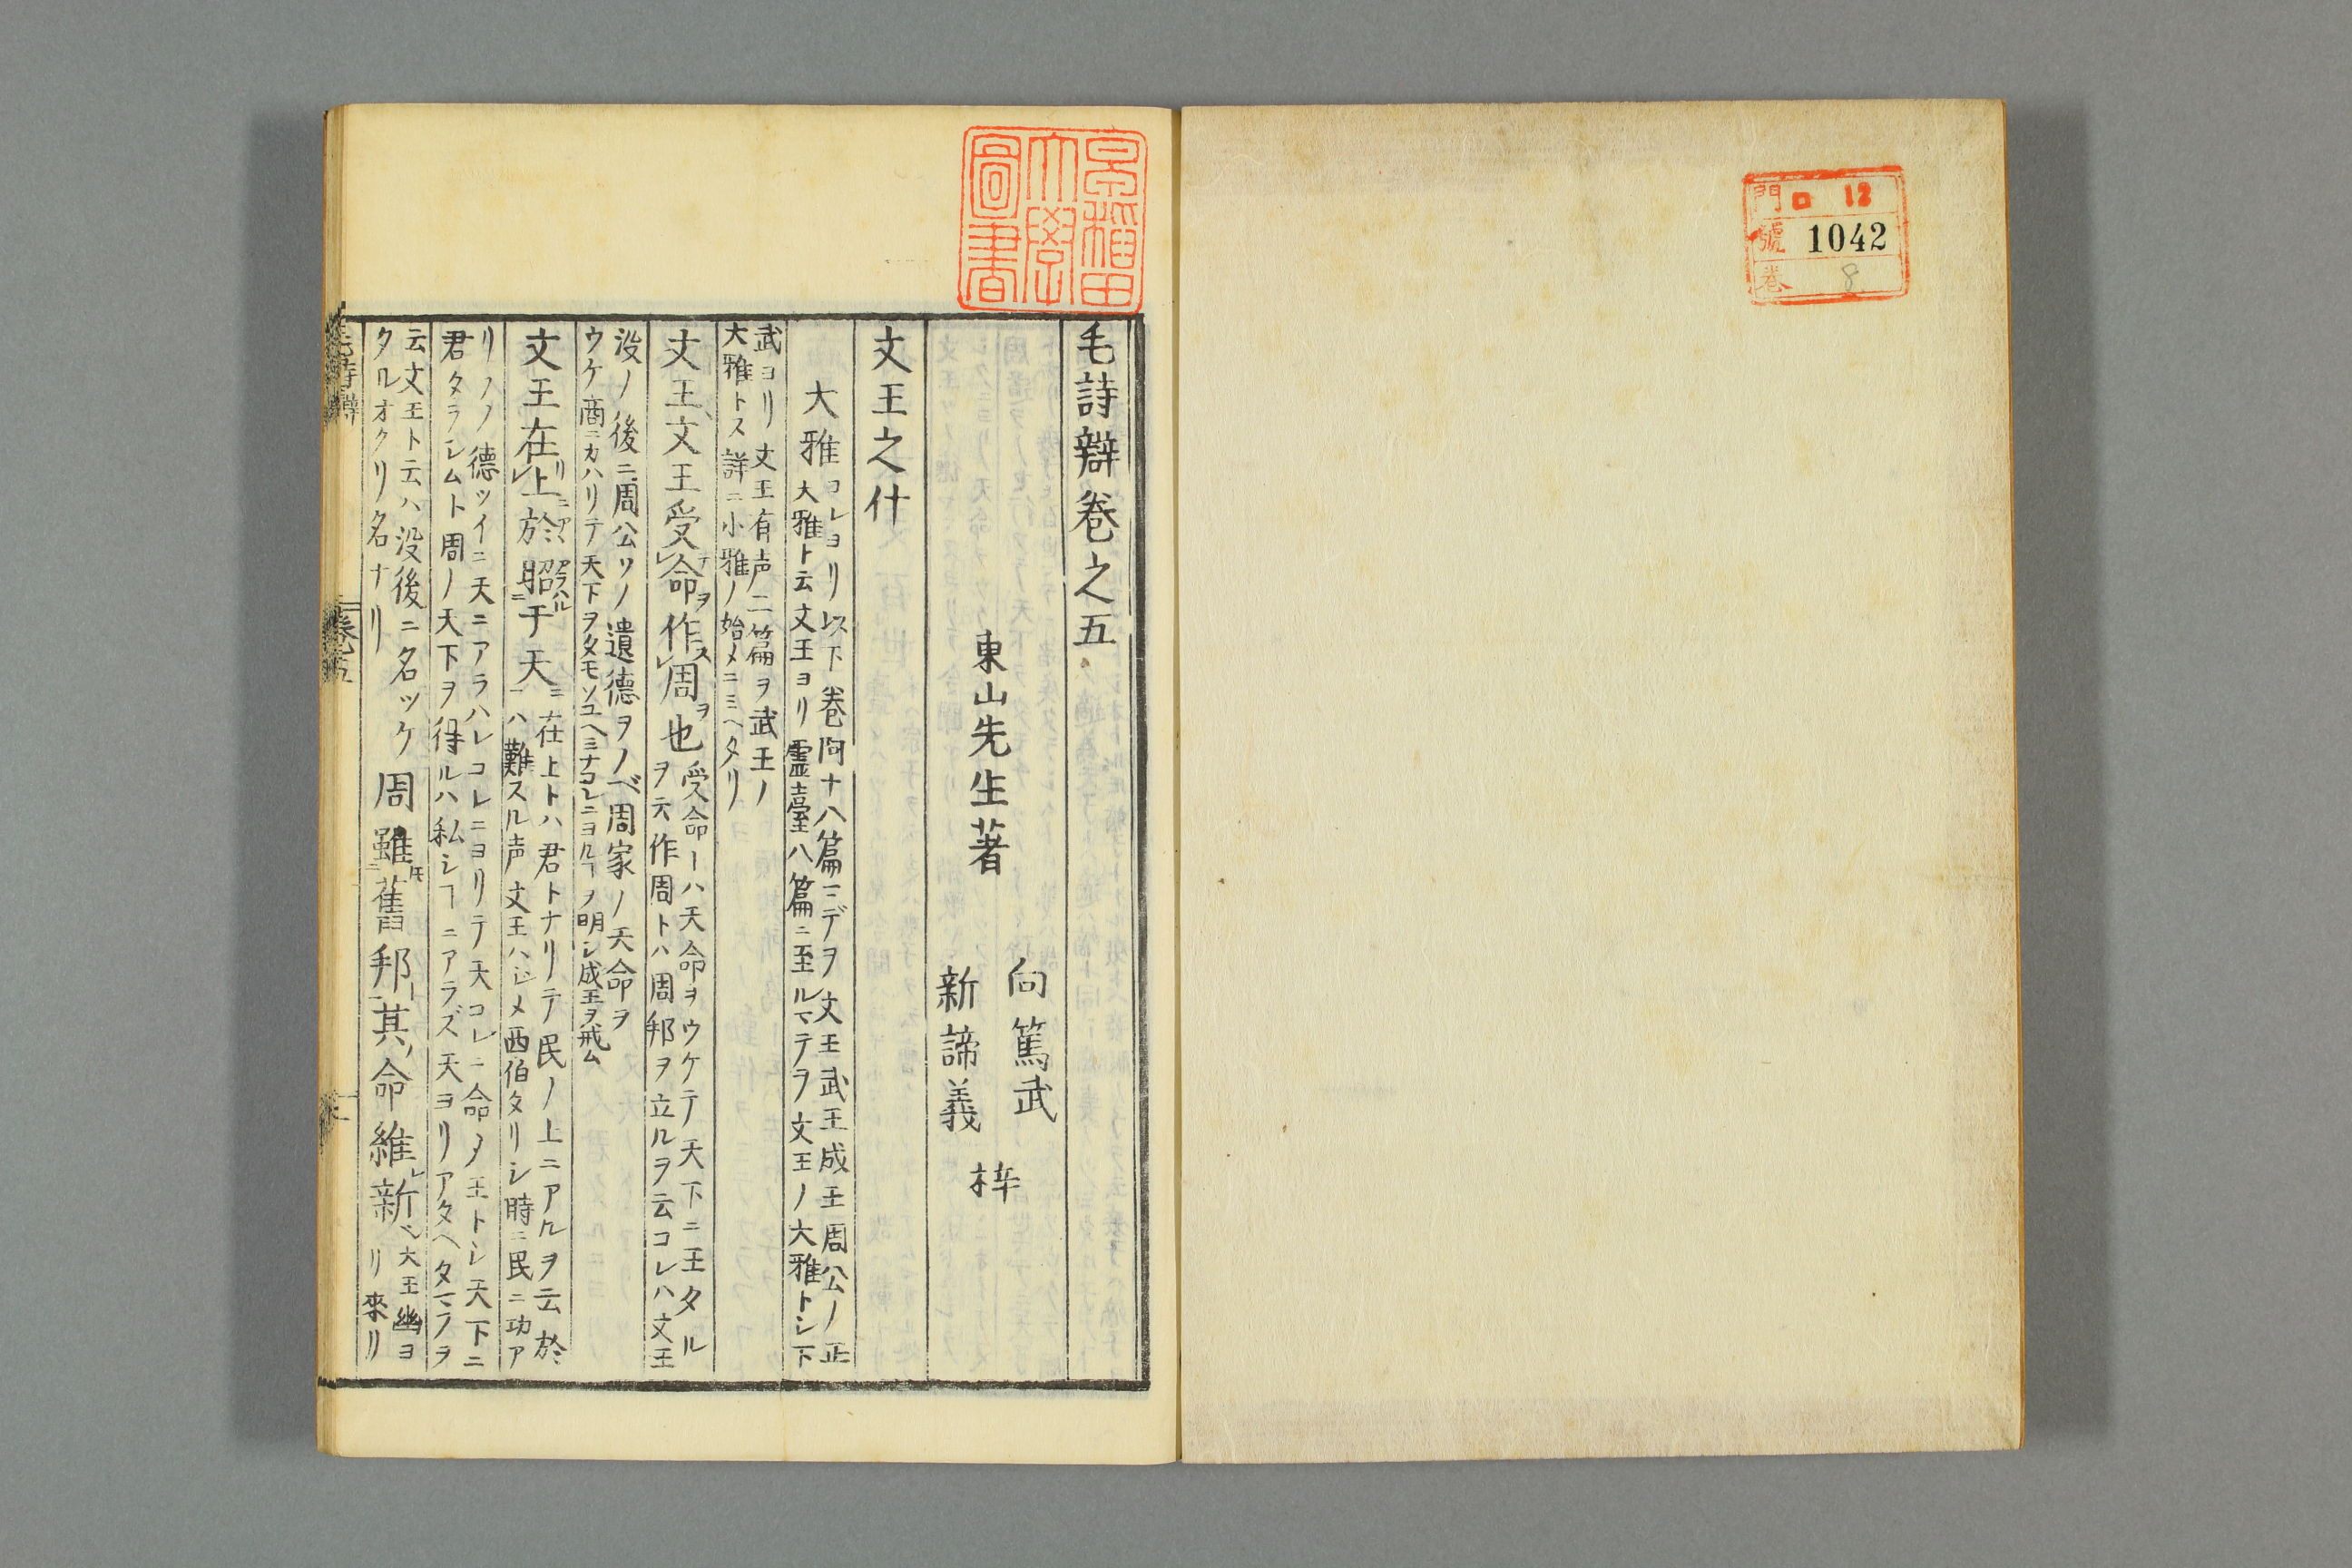 門 ロ 12
號 1042
巻 8
早稲田大學圖書
毛詩辯卷之五
東山先生著
向篤武
新諦義
梓
文王之什
大雅
コレヨリ以下卷阿十八篇マデヲ文王武王成王周公ノ正
大雅ト云文王ヨリ霊臺八篇ニ至ルマテヲ文王ノ大雅トシ下
武ヨリ文王有声二篇ヲ武王ノ
大雅トス詳ニ小雅ノ始メニミヘタリ
文王文王受命作周也
受命ーハ天命ヲウケテ天下ニ王タル
ヲ云作周トハ周邦ヲ立ルヲ云コレハ文王
没ノ後ニ周公ソノ遺德ヲノベ周家ノ天命ヲ
ウケ商ニカハリテ天下ヲタモツユヘミナコレニヨルヿヲ明シ成王ヲ戒ム
文王在上於昭于天
在上トハ君トナリテ民ノ上ニアルヲ云於
ハ難スル声文王ハジメ西伯タリシ時ニ民ニ功ア
リソノ德ツイニ天ニアラハレコレニヨリテ天コレニ命メ王トシ天下ニ
君タラシムト周ノ天下ヲ得ルハ私シヿニアラズ天ヨリアタヘタマフヲ
云文王ト云ハ没後ニ名ツケ
タルオクリ名ナリ
周雖舊邦其命維新
大王豳ヨ
リ來リ
毛詩辯 卷五